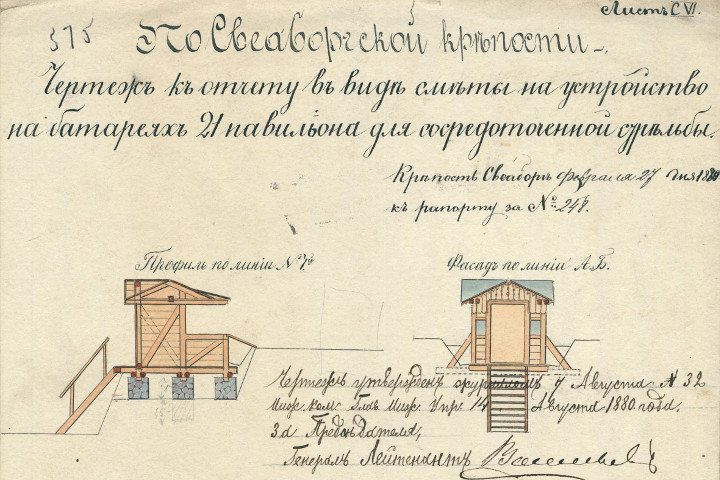 Листъ C VI.
375
По Свеаборгской крѣпости
Чертежъ къ отчету въ видѣ смѣты на устройство
на батареяхъ 21 павильона для сосредоточенной стрѣльбы.
Крѣпость Свеаборгъ февраля 27 дня 1880
къ рапорту за № 248.
Профиль по линіи
Фасадъ по линіи А.Б.
Чертежъ утвержденъ журналомъ 7 Августа № 32
Инж. ком. Глав. Инж. Упр. 14 Августа 1880 года.
За Предсѣдателя,
Генералъ Лейтенантъ